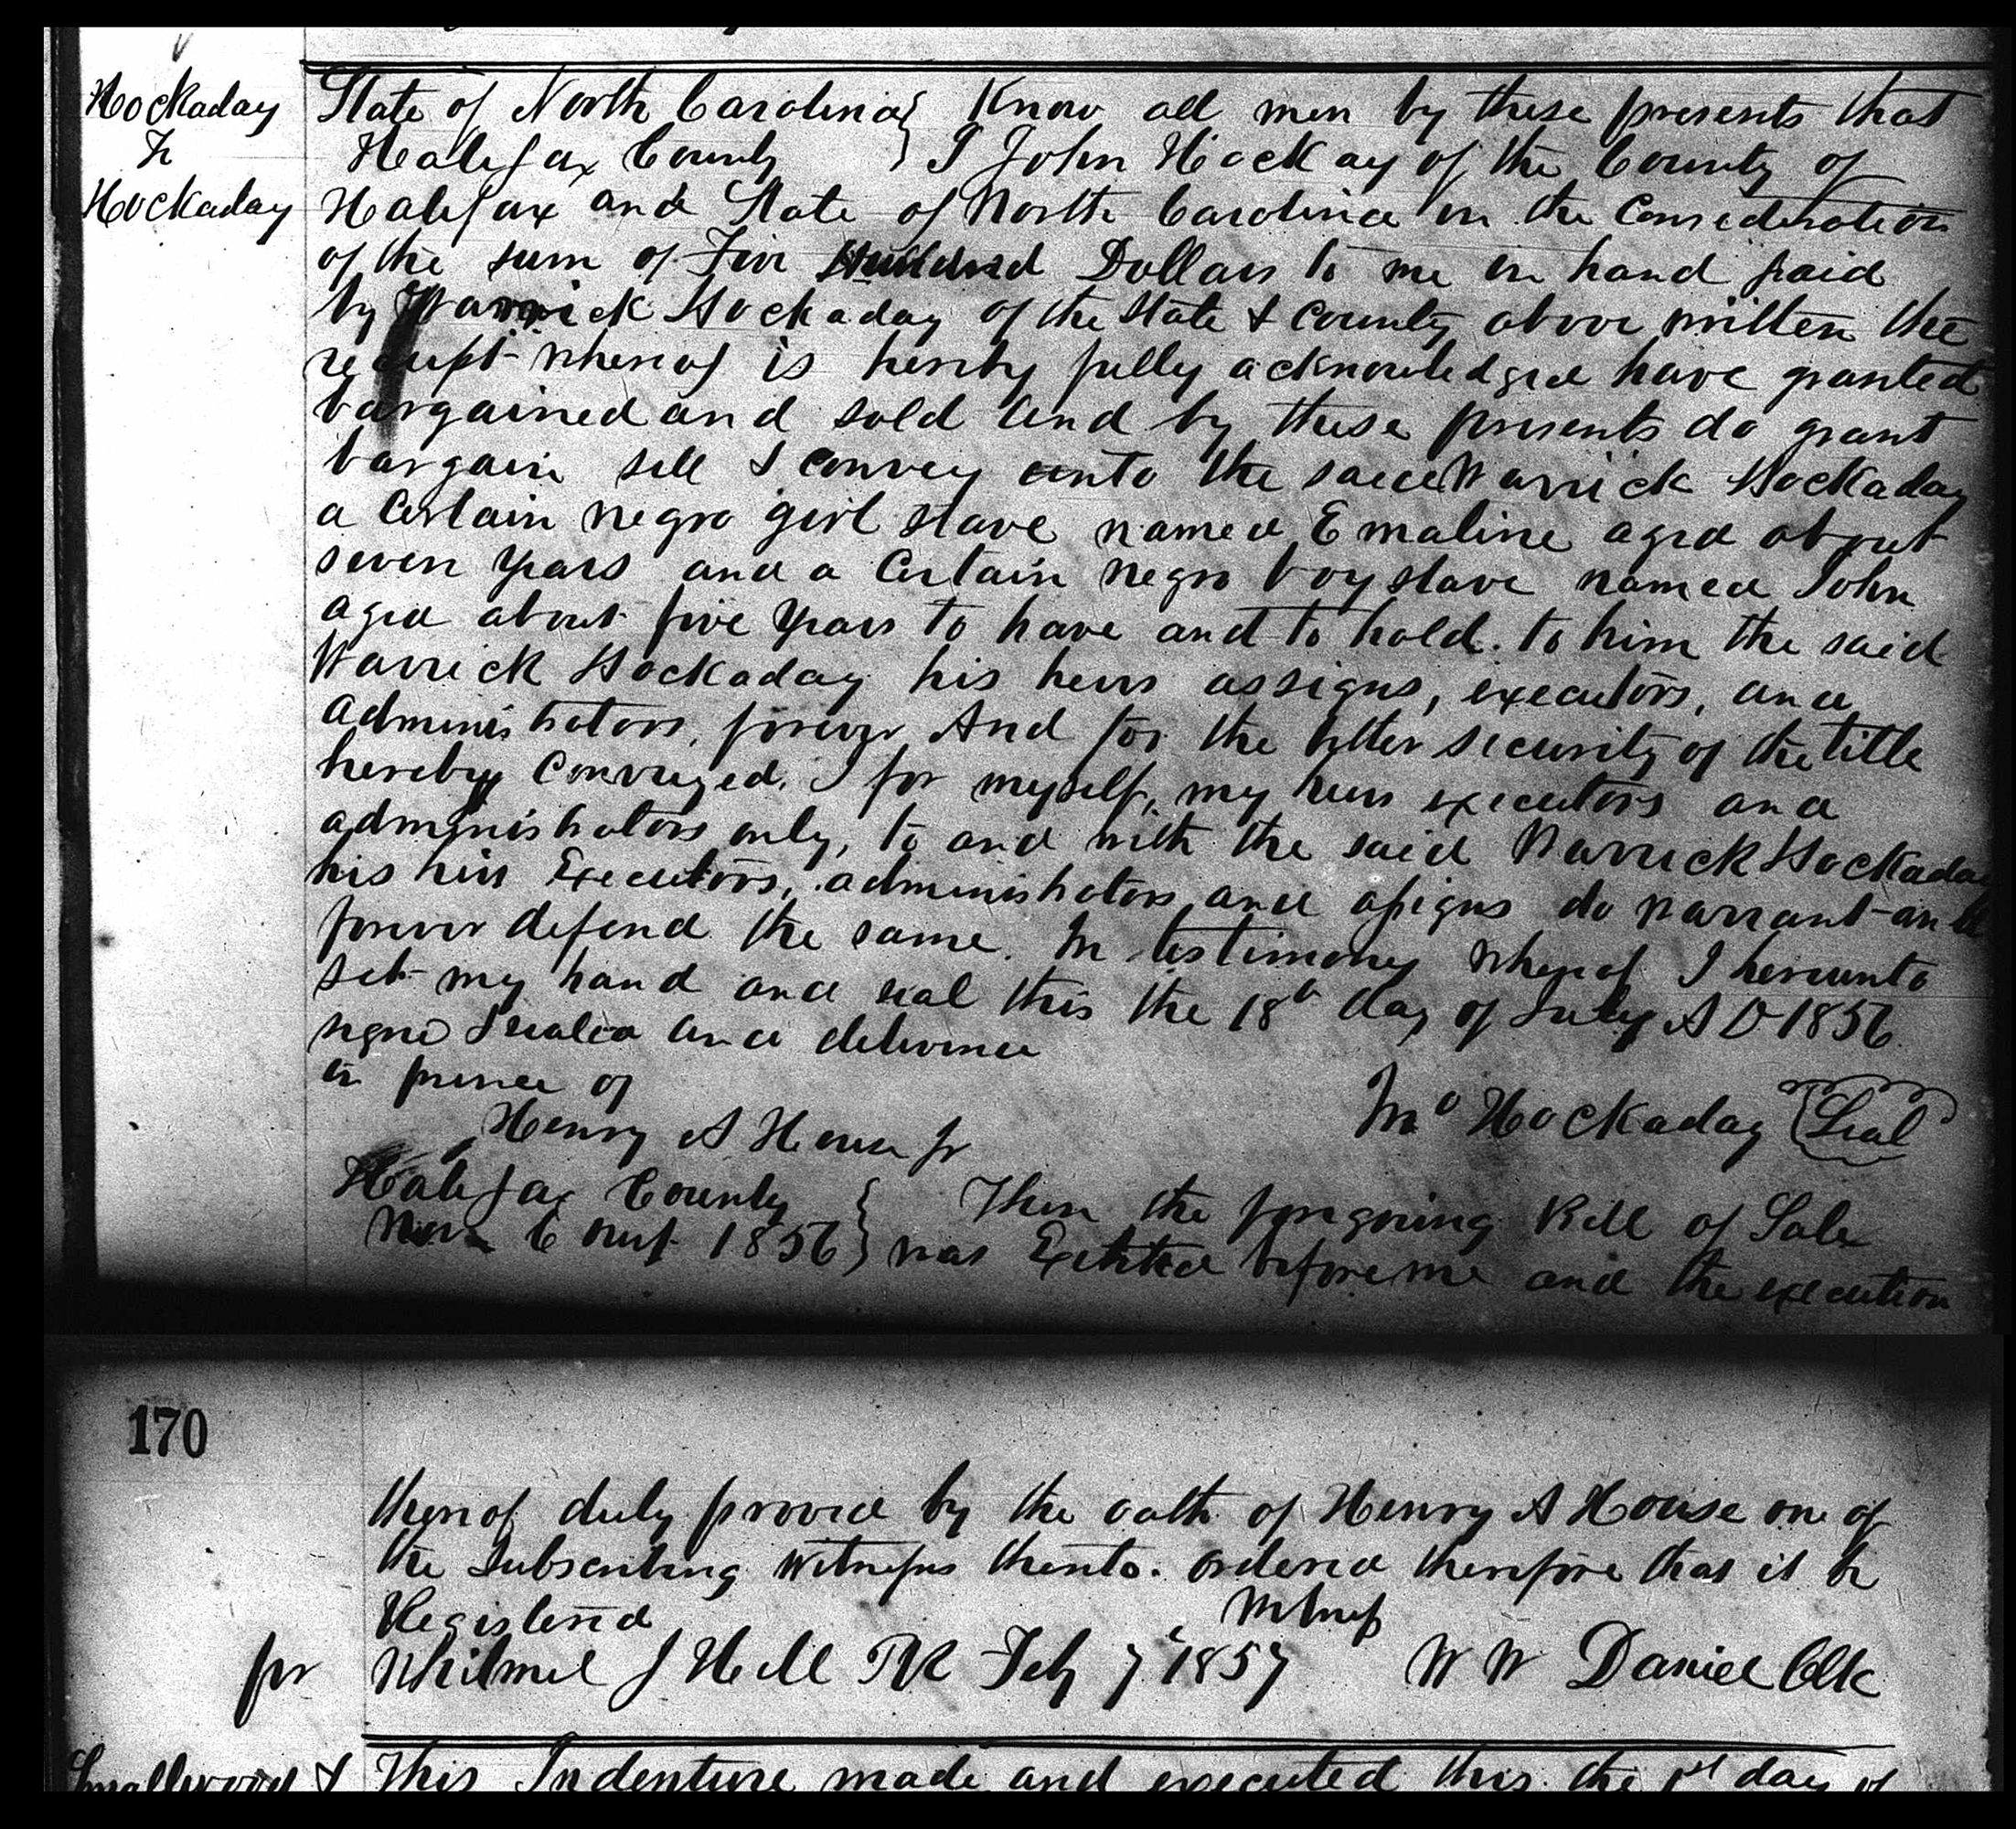 Hockaday
To
Hockaday
State of North Carolina } Know all men by these presents that
Halifax County } I John Hockay of the County of
Halifax and State of North Carolina in the Consideration
of the sum of Five Hundred Dollars to me in hand paid
by Warrick Hockaday of the State & County above written the
receipt whereof is hereby fully acknowledged have granted
bargained and sold and by these presents do grant
bargain sell & convey unto the said Warrick Hockaday
a Certain negro girl slave named Emaline aged about
seven years and a Certain negro boy slave named John
aged about five years to have and to hold. to him the said
Warrick Hockaday his heirs assigns, executors, and
administrators, forever And for the better security of the title
hereby Conveyed. I for myself, my heirs executors and
administrators only, to and with the said Warrick Hockaday
his heirs Executors, administrators and assigns do warrant and
forever defend the same. In testimony whereof I hereunto
set my hand and seal this the 18th day of July A D 1856
signd & sealed and delivered
in presence of
Jno Hockaday (Seal)
Henry A House jr
Halifax County } Then the foregoing Bill of Sale
1856 } was before me and the execution
170
thereof duly proved by the oath of Henry A House one of
the Subscribing witnesses thereto. ordered therefore that it be
Registered
Witness
for Whilmel J Hill PR Feby 7th 1857 W W Daniel Clk
Smallwood & This Indenture made and executed this the 1st day of